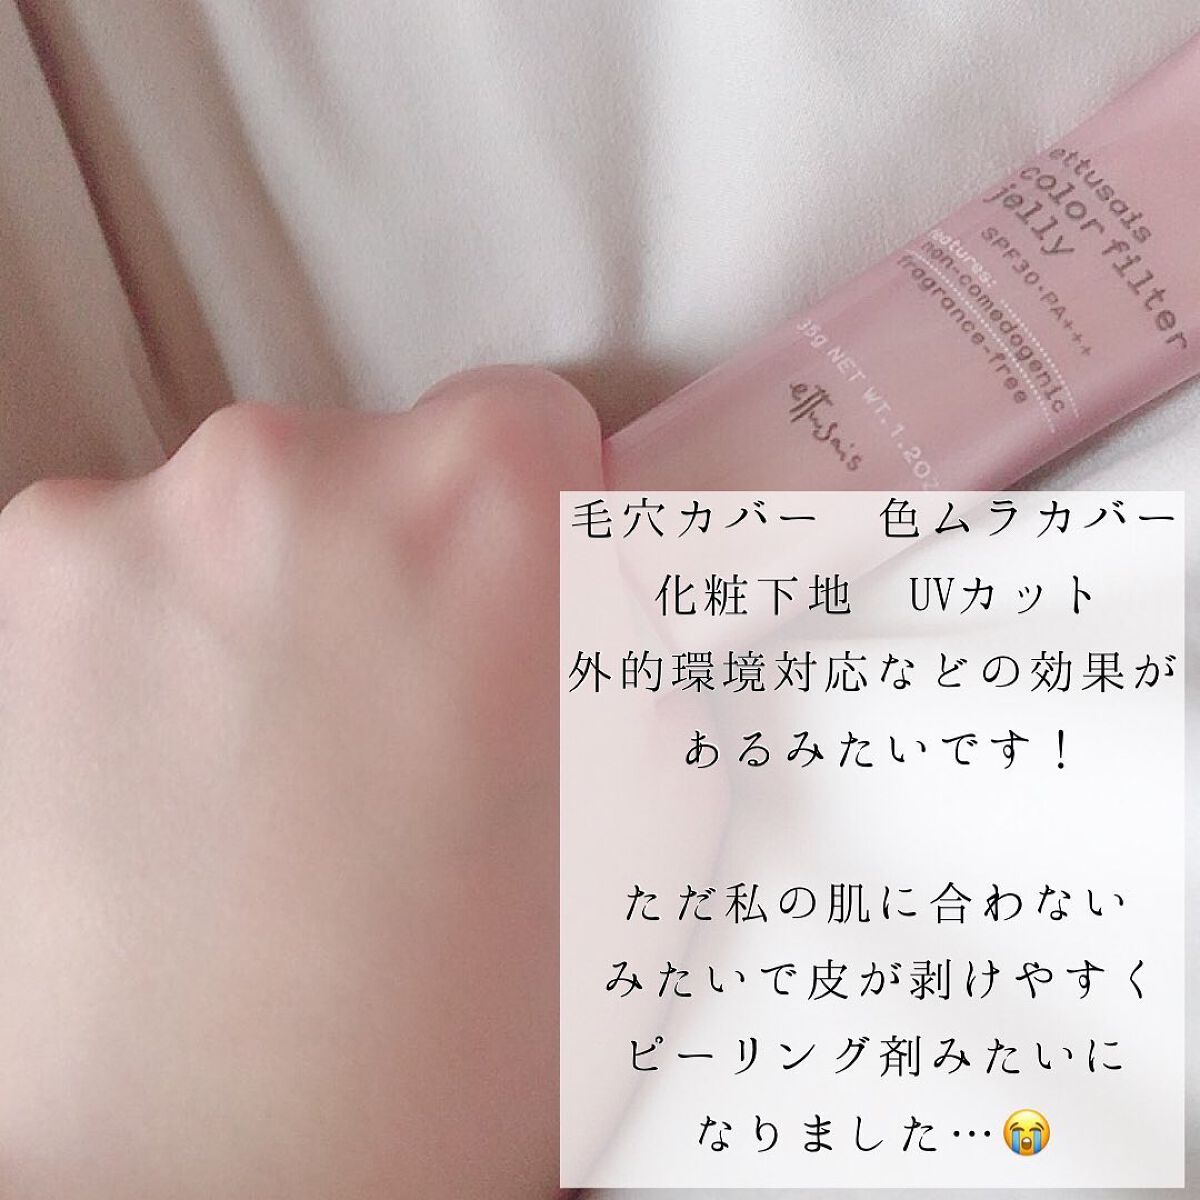 ettusais
color filter
jelly
SPF30・PA+++
features:
non-comedogenic
fragrance-free
35g NET WT.1.20oz
ettusais
毛穴カバー　色ムラカバー
化粧下地　UVカット
外的環境対応などの効果が
あるみたいです！
ただ私の肌に合わない
みたいで皮が剥けやすく
ピーリング剤みたいに
なりました…😭